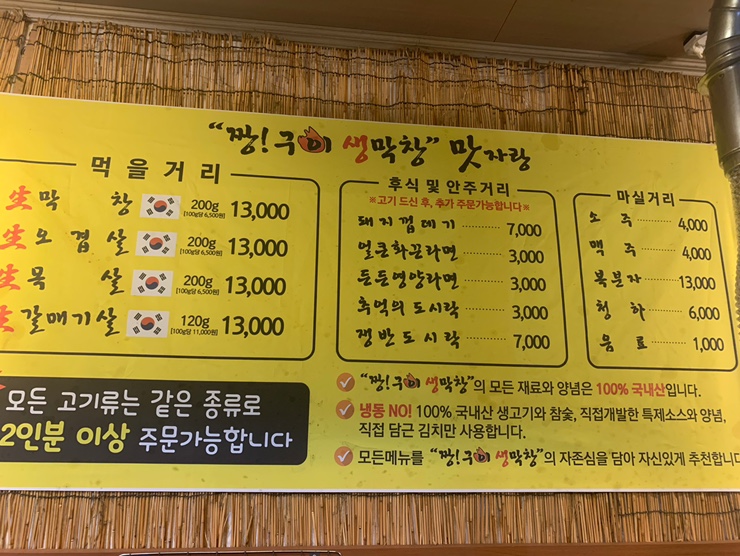 "짱! 구이 생막창" 맛자랑
먹을거리
生막창 200g [100g당 6,500원] 13,000
生오겹살 200g [100g당 6,500원] 13,000
生목살 200g [100g당 6,500원] 13,000
生갈매기살 120g [100g당 11,000원] 13,000
모든 고기류는 같은 종류로
2인분 이상 주문가능합니다
후식 및 안주거리
※고기 드신 후, 추가 주문가능합니다※
돼지껍데기 7,000
얼큰화끈라면 3,000
든든영양라면 3,000
추억의 도시락 3,000
쟁반도시락 7,000
마실거리
소주 4,000
맥주 4,000
복분자 13,000
청하 6,000
음료 1,000
"짱! 구이 생막창"의 모든 재료와 양념은 100% 국내산입니다.
냉동 NO! 100% 국내산 생고기와 참숯, 직접개발한 특제소스와 양념,
직접 담근 김치만 사용합니다.
모든메뉴를 "짱! 구이 생막창"의 자존심을 담아 자신있게 추천합니다